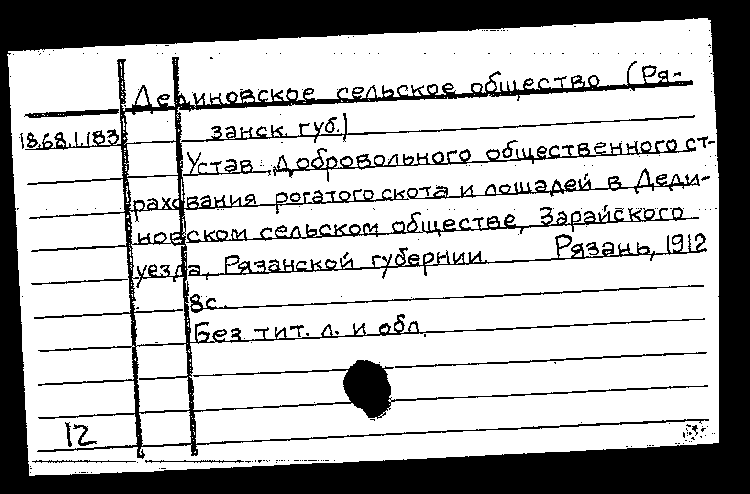 Дединовское сельское общество (Ря-
18.68.1.183
занск. губ.)
Устав „Добровольного общественного ст-
рахования рогатого скота и лошадей в Деди-
новском сельском обществе, Зарайского
уезда, Рязанской губернии. Рязань, 1912
8с.
Без тит. л. и обл.
12